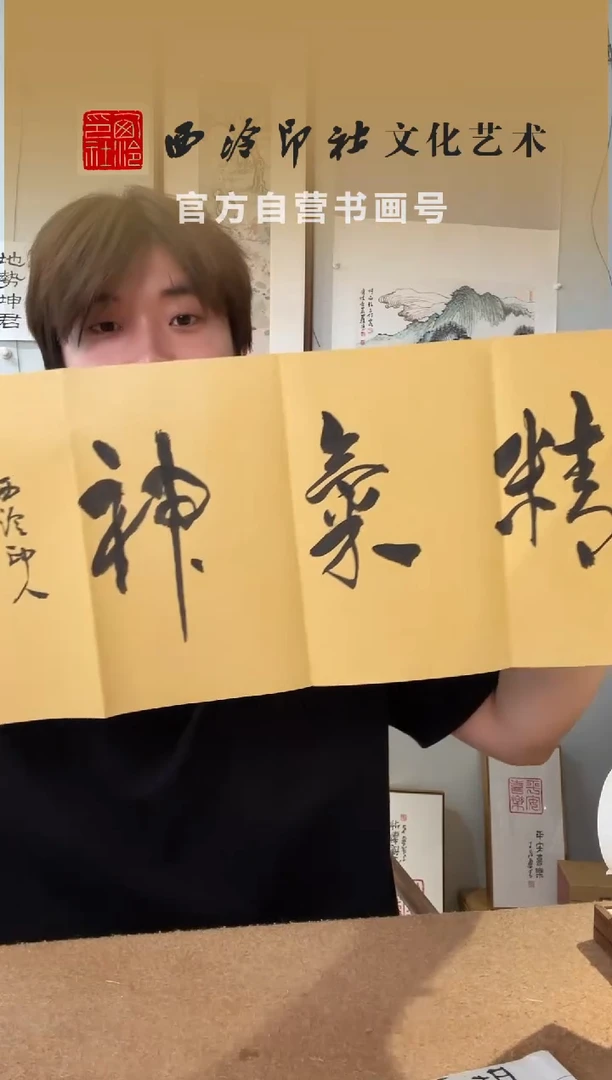 西泠印社
西泠印社文化艺术
官方自营书画号
地势坤君
精氣神
西泠印人
平安喜樂